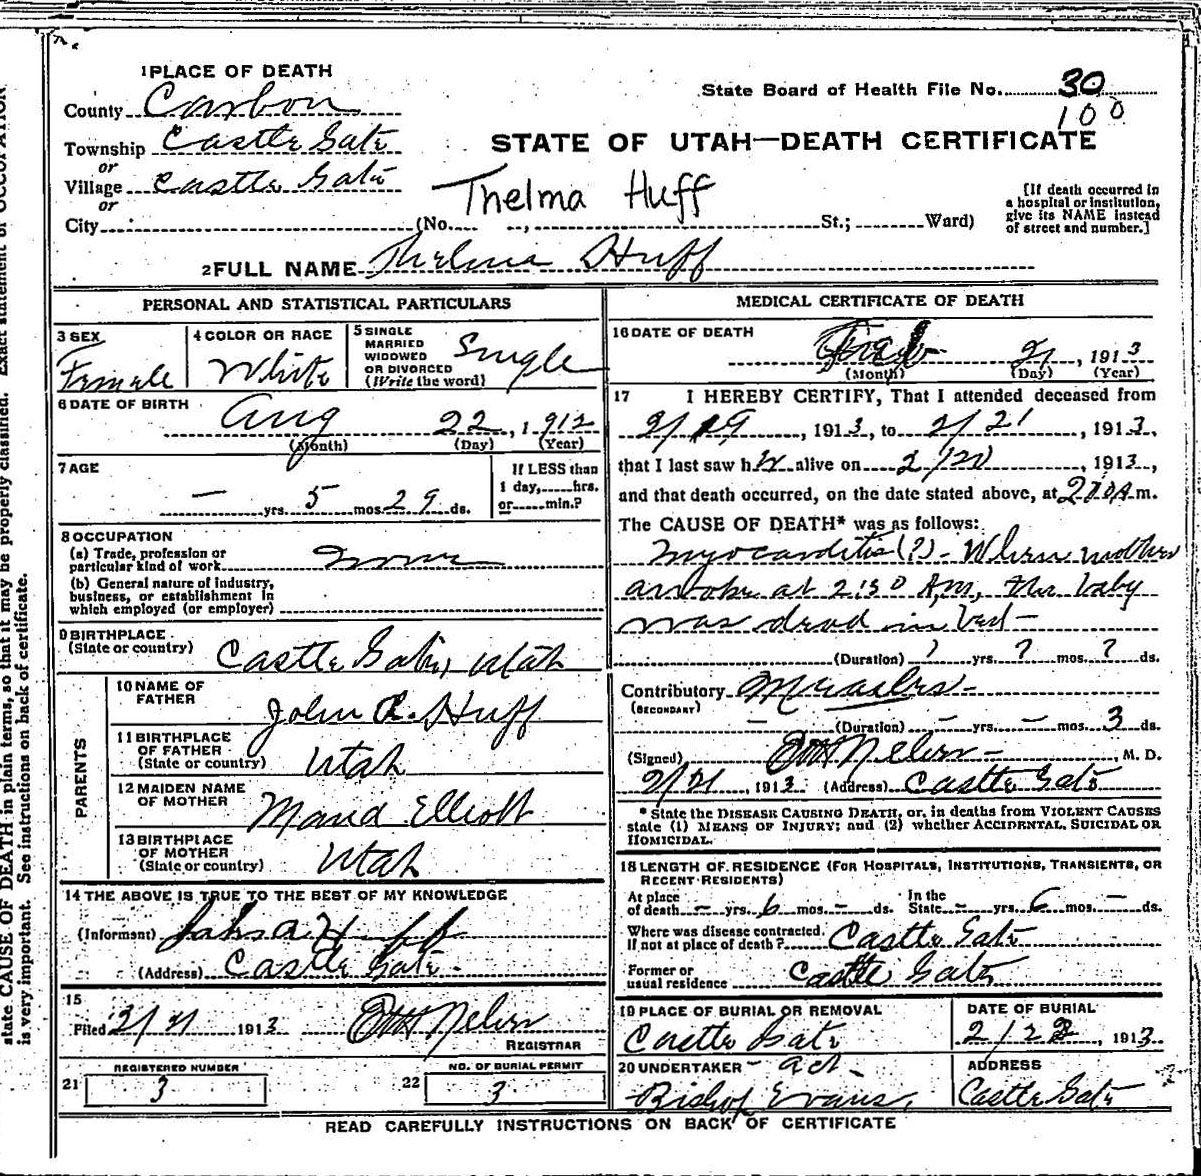 1 PLACE OF DEATH
County Carbon
Township Castle Gate
or
Village Castle Gate
or
City (No. , St.; Ward)
State Board of Health File No. 30
100
STATE OF UTAH—DEATH CERTIFICATE
Thelma Huff
[If death occurred in
a hospital or institution,
give its NAME instead
of street and number.]
2 FULL NAME Thelma Huff
PERSONAL AND STATISTICAL PARTICULARS
3 SEX
Female
4 COLOR OR RACE
White
5 SINGLE
MARRIED
WIDOWED
OR DIVORCED
(Write the word)
Single
6 DATE OF BIRTH
Aug 22, 1912
(Month) (Day) (Year)
7 AGE
— yrs. 5 mos. 29 ds.
If LESS than
1 day, hrs.
or min.?
8 OCCUPATION
(a) Trade, profession or
particular kind of work none
(b) General nature of industry,
business, or establishment in
which employed (or employer)
9 BIRTHPLACE
(State or country) Castle Gate, Utah
PARENTS
10 NAME OF
FATHER John A. Huff
11 BIRTHPLACE
OF FATHER
(State or country) Utah
12 MAIDEN NAME
OF MOTHER Maud Elliott
13 BIRTHPLACE
OF MOTHER
(State or country) Utah
14 THE ABOVE IS TRUE TO THE BEST OF MY KNOWLEDGE
(Informant) John A Huff
(Address) Castle Gate.
15
Filed 2/21 1913
REGISTRAR
21 REGISTERED NUMBER
3
22 NO. OF BURIAL PERMIT
3
MEDICAL CERTIFICATE OF DEATH
16 DATE OF DEATH
Feb 21, 1913
(Month) (Day) (Year)
17 I HEREBY CERTIFY, That I attended deceased from
2/19, 1913, to 2/21, 1913,
that I last saw her alive on 2/20, 1913,
and that death occurred, on the date stated above, at A.m.
The CAUSE OF DEATH* was as follows:
Myocarditis (?) - When mother
awoke at 2:30 A.M., the baby
was dead in bed -
(Duration) ? yrs. ? mos. ? ds.
Contributory Measles -
(SECONDARY)
— (Duration) — yrs. — mos. 3 ds.
(Signed) , M. D.
2/21, 1913 (Address) Castle Gate
* State the DISEASE CAUSING DEATH, or, in deaths from VIOLENT CAUSES
state (1) MEANS OF INJURY; and (2) whether ACCIDENTAL, SUICIDAL OR
HOMICIDAL.
18 LENGTH OF RESIDENCE (FOR HOSPITALS, INSTITUTIONS, TRANSIENTS, OR
RECENT RESIDENTS)
At place
of death — yrs. 6 mos. — ds.
In the
State — yrs. 6 mos. — ds.
Where was disease contracted.
If not at place of death? Castle Gate
Former or
usual residence Castle Gate
19 PLACE OF BURIAL OR REMOVAL
Castle Gate
DATE OF BURIAL
2/22, 1913
20 UNDERTAKER - act -
Bishop Evans.
ADDRESS
Castle Gate
READ CAREFULLY INSTRUCTIONS ON BACK OF CERTIFICATE
state CAUSE OF DEATH in plain terms, so that it may be properly classified. Exact statement of OCCUPATION
is very important. See instructions on back of certificate.